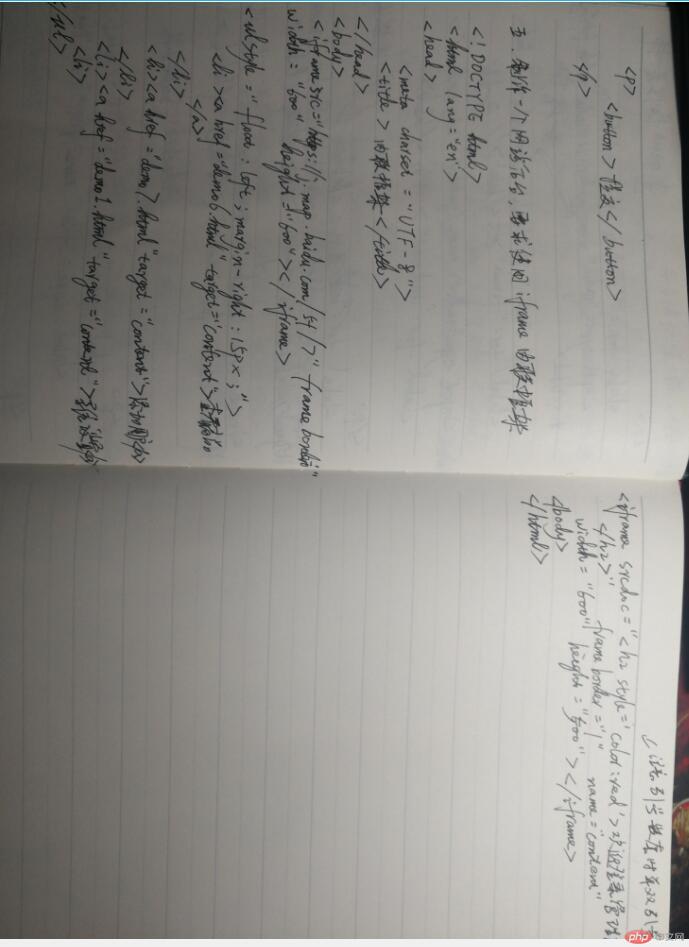 <p>
<button>提交</button>
</p>
五、制作一个网站后台,要求使用iframe内联框架
<!DOCTYPE html>
<html lang="en">
<head>
<meta charset="UTF-8">
<title>内联框架</title>
</head>
<body>
<iframe src="https://j.map.baidu.com/s4/7" frameborder
width="600" height="600"></iframe>
<ul style="float:left;margin-right:15px;">
<li><a href="demo6.html" target="content">
</a>
</li>
<li><a href="demo7.html" target="content">添加
</li>
<li><a href="demo2.html" target="content">
<li>
</ul>
注意引号
<iframe srcdoc="<h2 style='color:red'>欢迎
</h2>" frameborder="1" name="content"
width="600" height="500"></iframe>
</body>
</html>
php